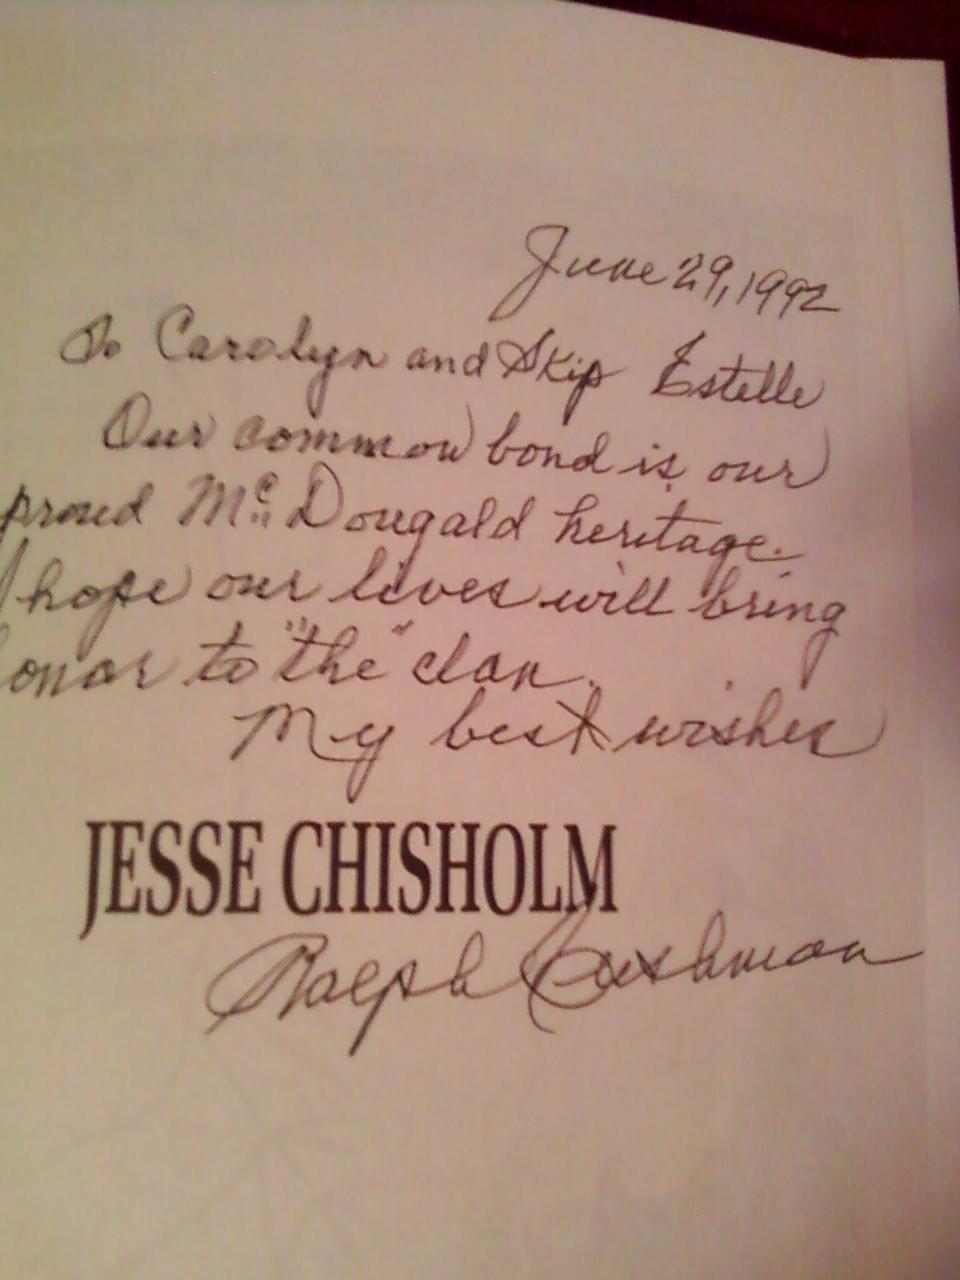 June 29, 1992
To Carolyn and Skip Estelle
Our common bond is our
proud McDougald heritage.
I hope our lives will bring
honor to "the" clan.
My best wishes
JESSE CHISHOLM
Ralph Cushman